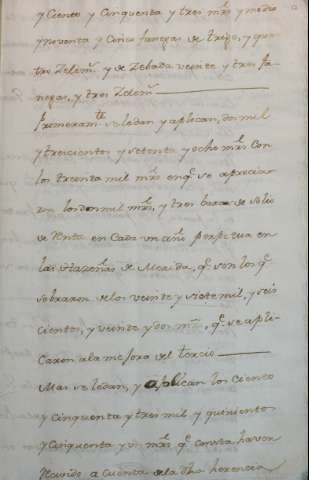 y ciento y cinquenta y tres mrs y medio
y noventa y cinco fanegas de trigo, y qua
tro Zelem.s y de Zebada veinte y tres fa
negas, y tres Zelem.s
Primeram.te se le dan y aplican, dos mil
y treicientos y setenta y ocho mrs. con
los treinta mil mrs en q.e se apreciar
on los dos mil mrs, y tres
de renta en cada un año perpetua en
las de Alcaida, q.e son los q.e
sobraron de los veinte y siete mil, y seis
cientos, y veinte y dos mrs, q.e se apli
caron a la mejora del tercio
Mas se le dan, y aplican los ciento
y cinquenta y tres mil y quinientos
y cinquenta y un mrs q.e consta haver
recivido a cuenta de la dha herencia